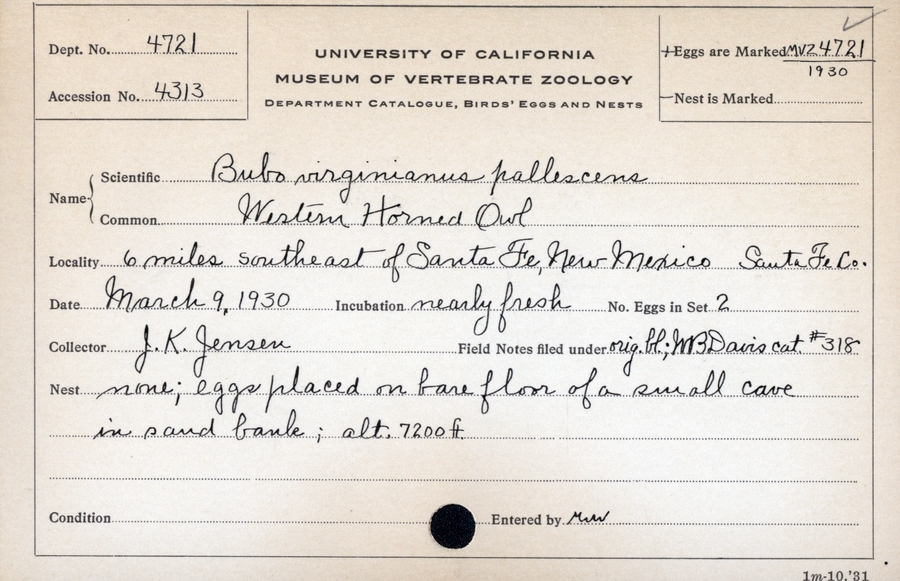 Dept. No. 4721
UNIVERSITY OF CALIFORNIA
MUSEUM OF VERTEBRATE ZOOLOGY
DEPARTMENT CATALOGUE, BIRDS' EGGS AND NESTS
Eggs are Marked MVZ 4721
1930
Accession No. 4313
Nest is Marked
Name
Scientific Bubo virginianus pallescens
Common Western Horned Owl
Locality 6 miles southeast of Santa Fe, New Mexico Santa Fe Co.
Date March 9, 1930 Incubation nearly fresh No. Eggs in Set 2
Collector J. K. Jensen Field Notes filed under orig. bl.; WBDavis cat. #318
Nest none; eggs placed on bare floor of a small cave
in sand bank; alt. 7200 ft.
Condition Entered by
1m-10,'31